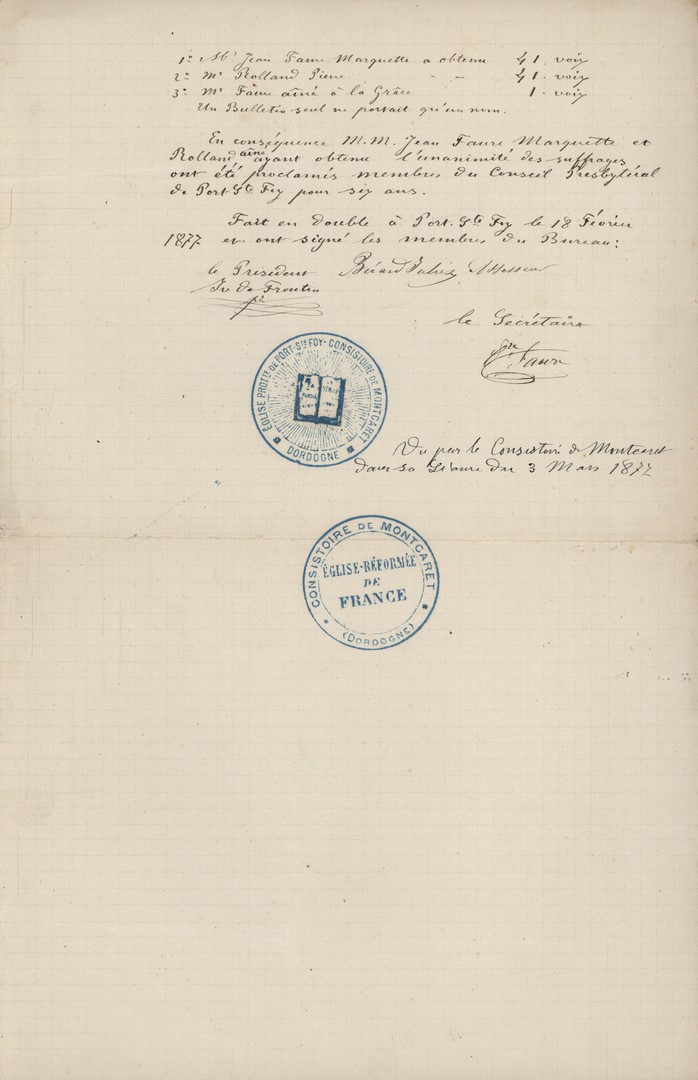 1º Mr Jean Faure Marquette a obtenu 41 voix
2º Mr Rolland Pierre - - 41 - voix
3º Mr Faure aîné à la Grâce 1 - voix
Un Bulletin seul ne portait qu'un nom.
En conséquence M.M. Jean Faure Marquette et
Rolland aîné ayant obtenu l'unanimité des suffrages
ont été proclamés membres du Conseil Presbytéral
de Port Ste Foy pour six ans.
Fait en double à Port Ste Foy le 18 Février
1877 et ont signé les membres du Bureau:
le Président Assesseur
le Secrétaire
Faure
ÉGLISE PROTte DE PORT-Ste FOY - CONSISTOIRE DE MONTCARET
DORDOGNE
Vu par le Consistoire de Montcaret
dans sa Séance du 3 Mars 1877
CONSISTOIRE DE MONTCARET
ÉGLISE-RÉFORMÉE
DE
FRANCE
(DORDOGNE)